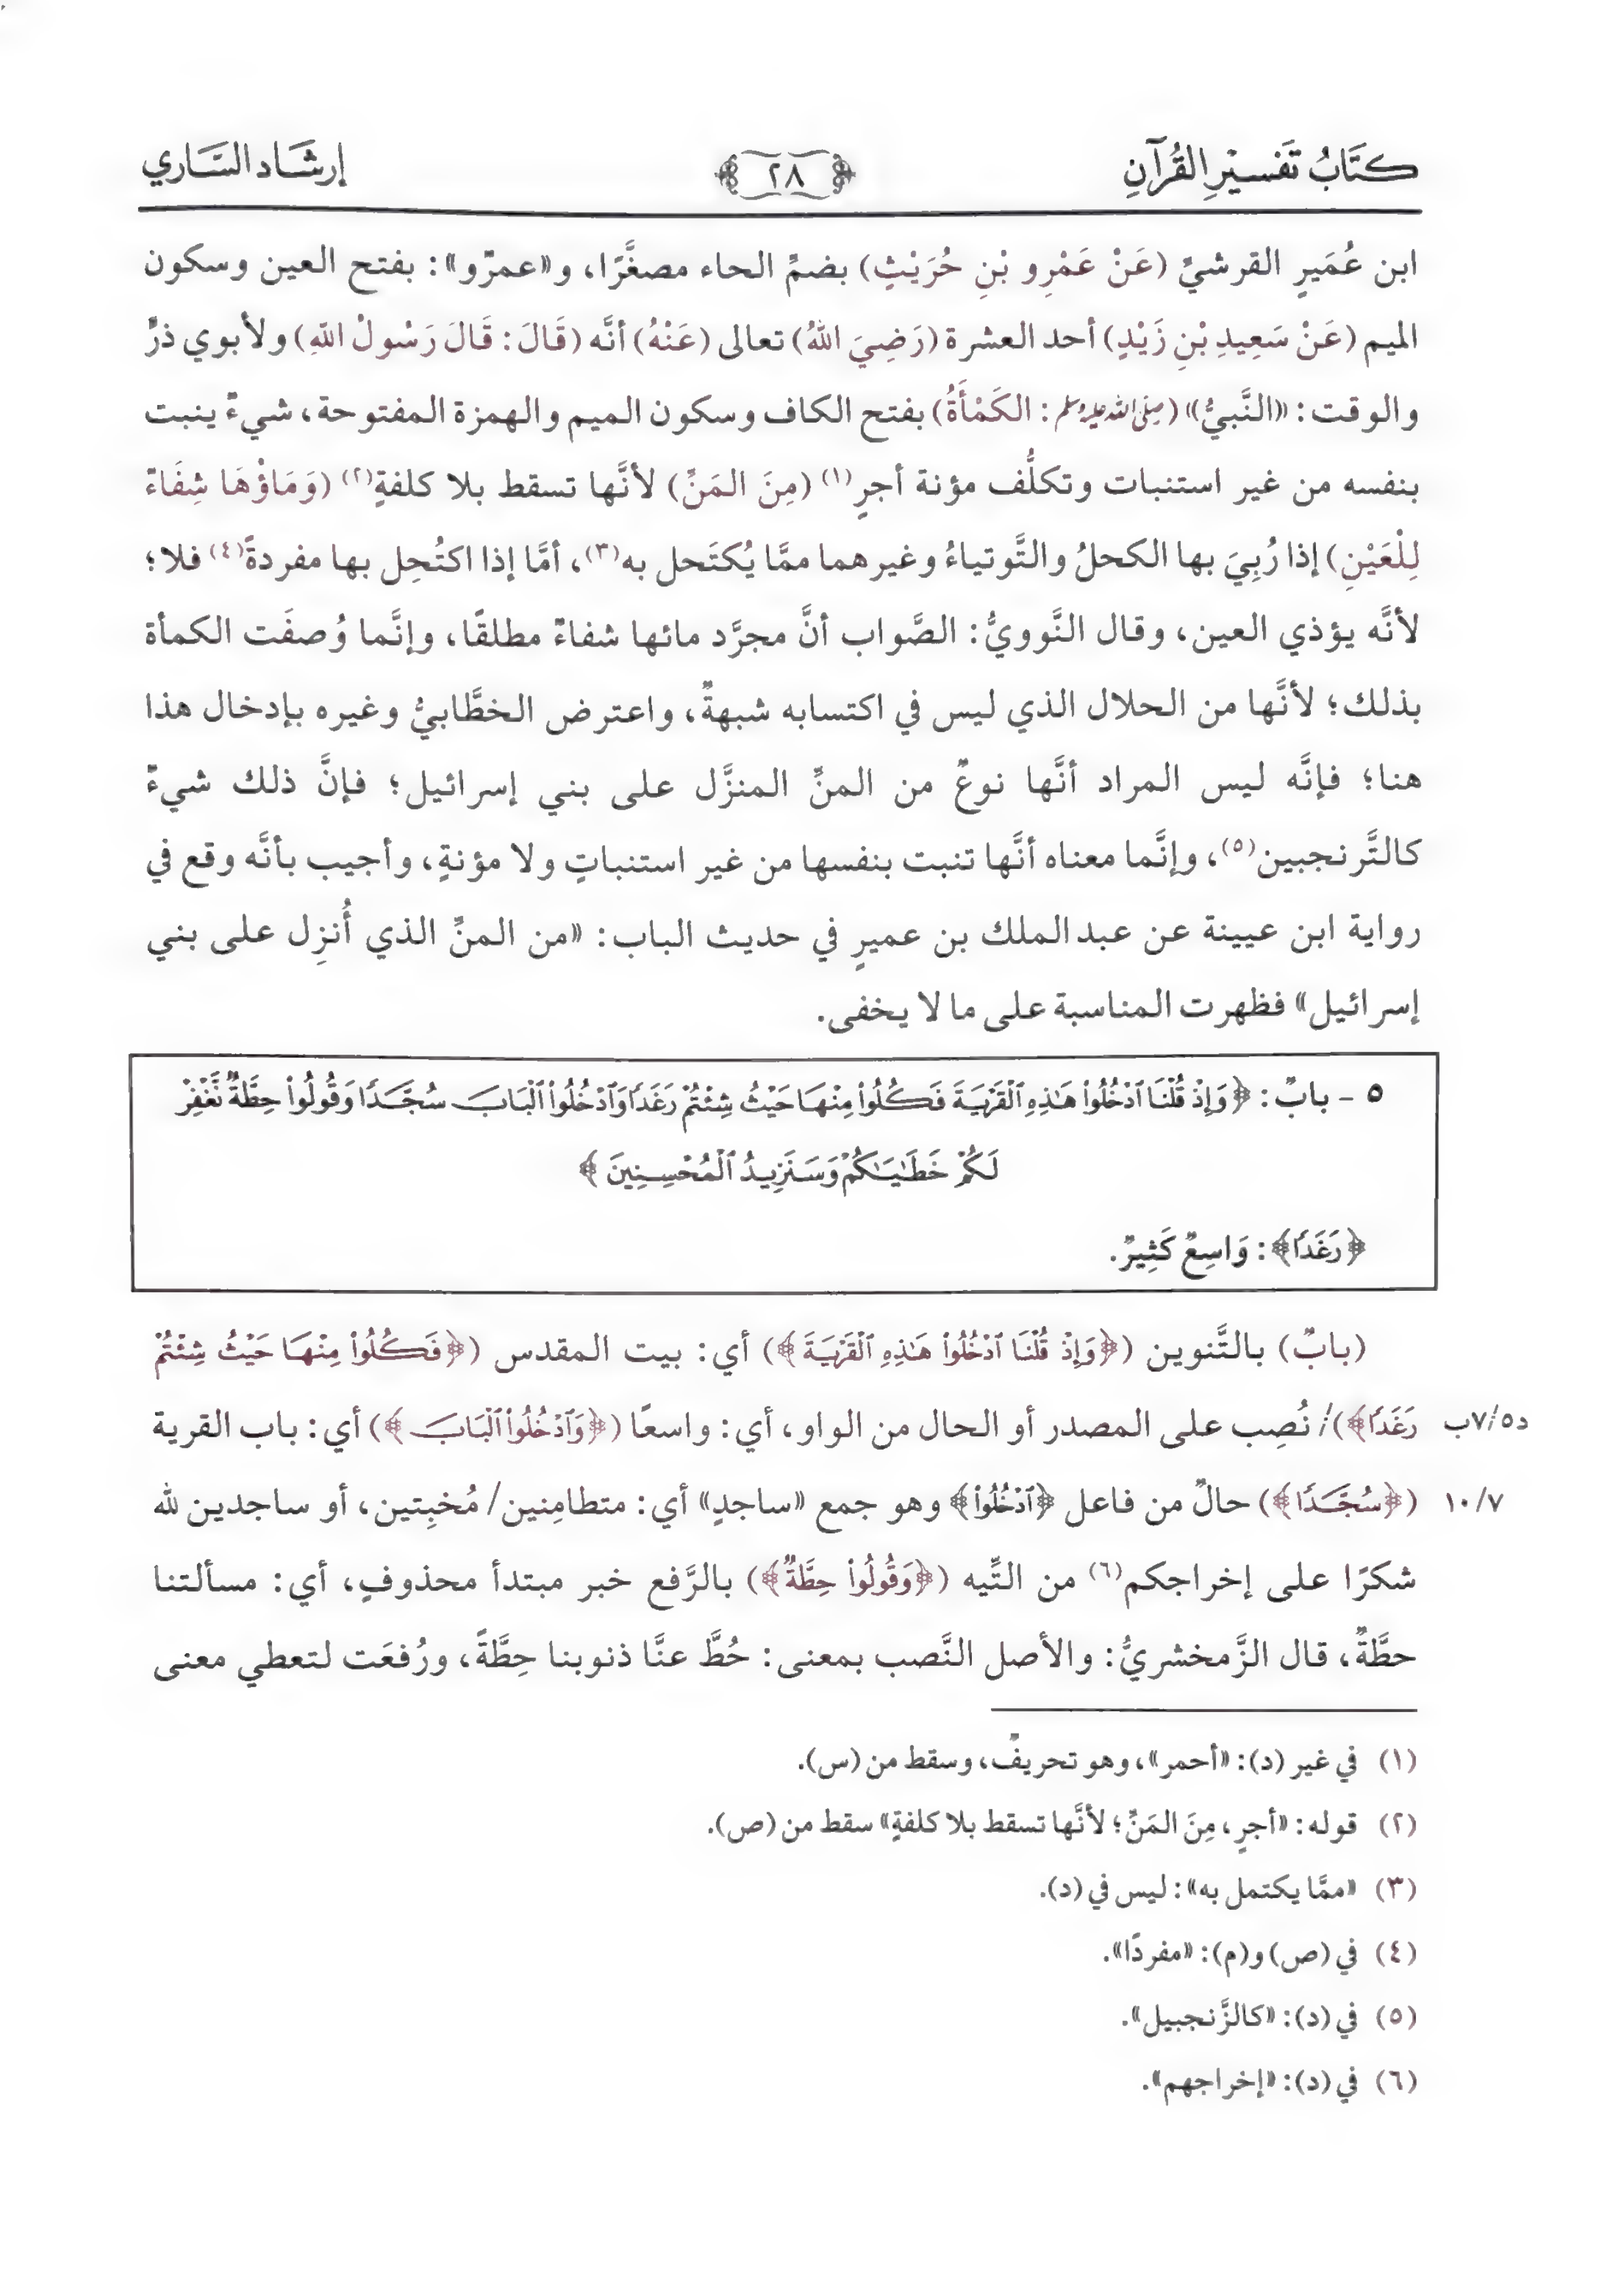 كتَابُ تَفسيْرِ القُرآنِ
٢٨
إرشَاد السَّاري
ابن عُمَيرٍ القرشيِّ (عَنْ عَمْرِو بْنِ حُرَيْثٍ) بضمِّ الحاء مصغَّرًا، و«عمرٌو»: بفتح العين وسكون
الميم (عَنْ سَعِيدِ بْنِ زَيْدٍ) أحد العشرة (رَضِيَ اللهُ) تعالى (عَنْهُ) أنَّه (قَالَ: قَالَ رَسُولُ اللهِ) ولأبوي ذرٍّ
والوقت: «النَّبيُّ» (صلى الله عليه وسلم: الكَمْأَةُ) بفتح الكاف وسكون الميم والهمزة المفتوحة، شيءٌ ينبت
بنفسه من غير استنبات وتكلُّف مؤنة أجرٍ(١) (مِنَ المَنِّ) لأنَّها تسقط بلا كلفةٍ(٢) (وَمَاؤْهَا شِفَاءٌ
لِلْعَيْنِ) إذا رُبِيَ بها الكحلُ والتَّوتياءُ وغيرهما ممَّا يُكتَحل به(٣)، أمَّا إذا اكتُحِل بها مفردةً(٤) فلا؛
لأنَّه يؤذي العين، وقال النَّوويُّ: الصَّواب أنَّ مجرَّد مائها شفاءٌ مطلقًا، وإنَّما وُصفَت الكمأة
بذلك؛ لأنَّها من الحلال الذي ليس في اكتسابه شبهةٌ، واعترض الخطَّابيُّ وغيره بإدخال هذا
هنا؛ فإنَّه ليس المراد أنَّها نوعٌ من المنِّ المنزَّل على بني إسرائيل؛ فإنَّ ذلك شيءٌ
كالتَّرنجبين(٥)، وإنَّما معناه أنَّها تنبت بنفسها من غير استنباتٍ ولا مؤنةٍ، وأجيب بأنَّه وقع في
رواية ابن عيينة عن عبد الملك بن عميرٍ في حديث الباب: «من المنِّ الذي أُنزِل على بني
إسرائيل» فظهرت المناسبة على ما لا يخفى.
٥ - بابٌ: ﴿وَإِذْ قُلْنَا ٱدْخُلُوا۟ هَٰذِهِ ٱلْقَرْيَةَ فَكُلُوا۟ مِنْهَا حَيْثُ شِئْتُمْ رَغَدًا وَٱدْخُلُوا۟ ٱلْبَابَ سُجَّدًا وَقُولُوا۟ حِطَّةٌ نَّغْفِرْ
لَكُمْ خَطَٰيَٰكُمْ وَسَنَزِيدُ ٱلْمُحْسِنِينَ﴾
﴿رَغَدًا﴾: وَاسِعٌ كَثِيرٌ.
(بابٌ) بالتَّنوين (﴿وَإِذْ قُلْنَا ٱدْخُلُوا۟ هَٰذِهِ ٱلْقَرْيَةَ﴾) أي: بيت المقدس (﴿فَكُلُوا۟ مِنْهَا حَيْثُ شِئْتُمْ
د٧/٥ب رَغَدًا﴾)/ نُصِب على المصدر أو الحال من الواو، أي: واسعًا (﴿وَٱدْخُلُوا۟ ٱلْبَابَ﴾) أي: باب القرية
١٠/٧ (﴿سُجَّدًا﴾) حالٌ من فاعل ﴿ٱدْخُلُوا۟﴾ وهو جمع «ساجدٍ» أي: متطامِنين/ مُخبِتين، أو ساجدين لله
شكرًا على إخراجكم(٦) من التِّيه (﴿وَقُولُوا۟ حِطَّةٌ﴾) بالرَّفع خبر مبتدأ محذوفٍ، أي: مسألتنا
حطَّةٌ، قال الزَّمخشريُّ: والأصل النَّصب بمعنى: حُطَّ عنَّا ذنوبنا حِطَّةً، ورُفعَت لتعطي معنى
(١) في غير (د): «أحمر»، وهو تحريفٌ، وسقط من (س).
(٢) قوله: «أجرٍ، مِنَ المَنِّ؛ لأنَّها تسقط بلا كلفةٍ» سقط من (ص).
(٣) «ممَّا يكتمل به»: ليس في (د).
(٤) في (ص) و(م): «مفردًا».
(٥) في (د): «كالزَّنجبيل».
(٦) في (د): «إخراجهم».